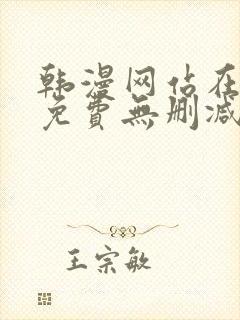 韩漫网站在
免費無删减
王宗敏